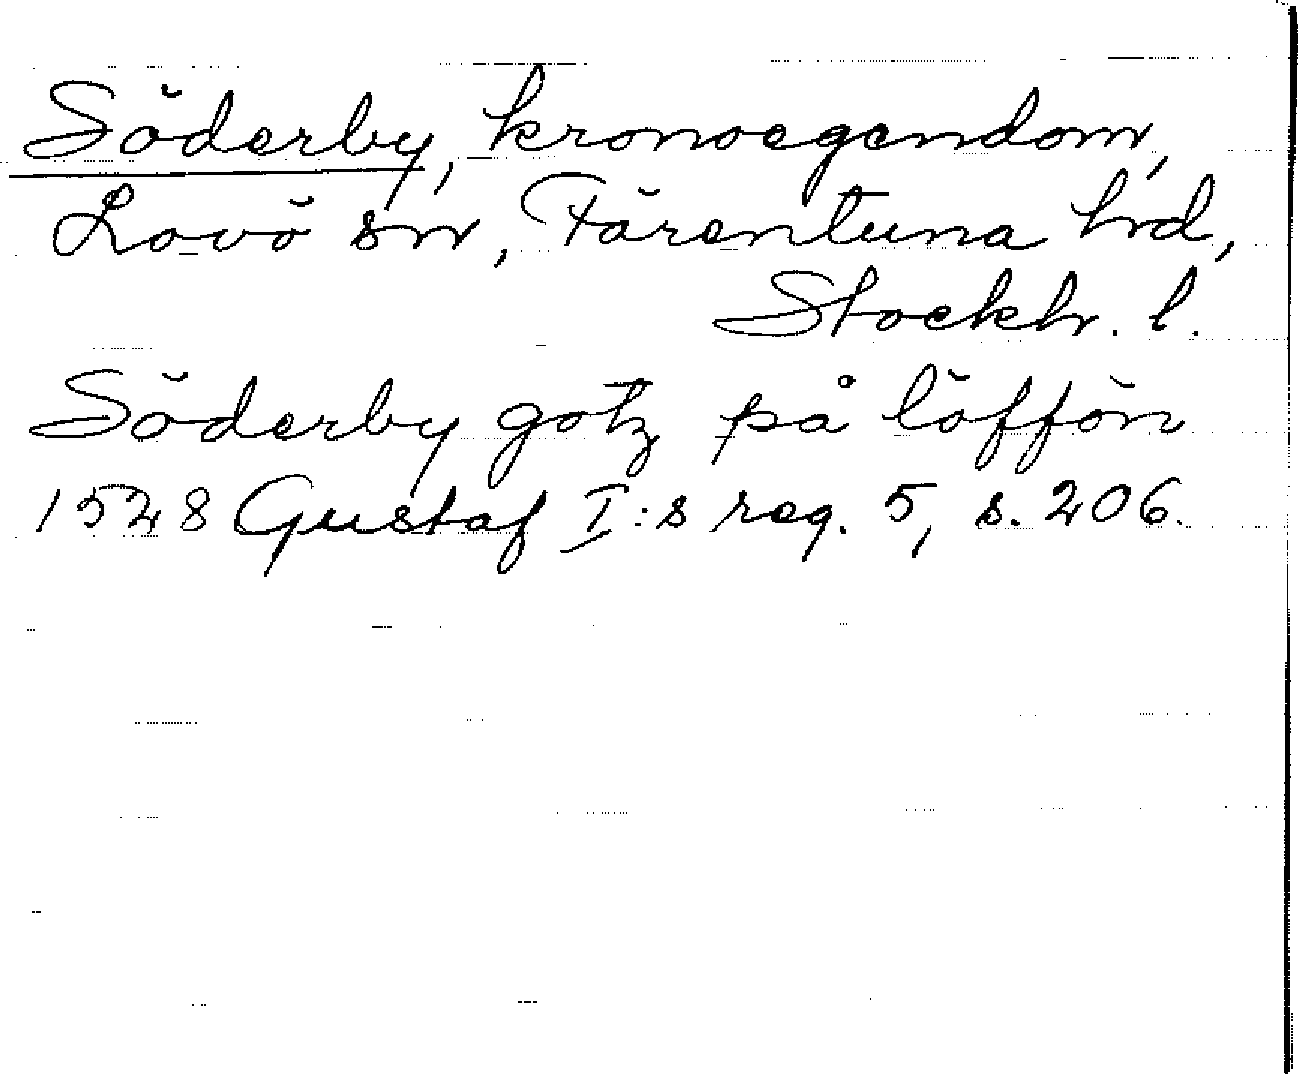 Söderby, kronoegendom,
Lovö sn, Färentuna hd,
Stockh. l.
Söderby gotz på löffön
1528 Gustaf I:s reg. 5, s. 206.